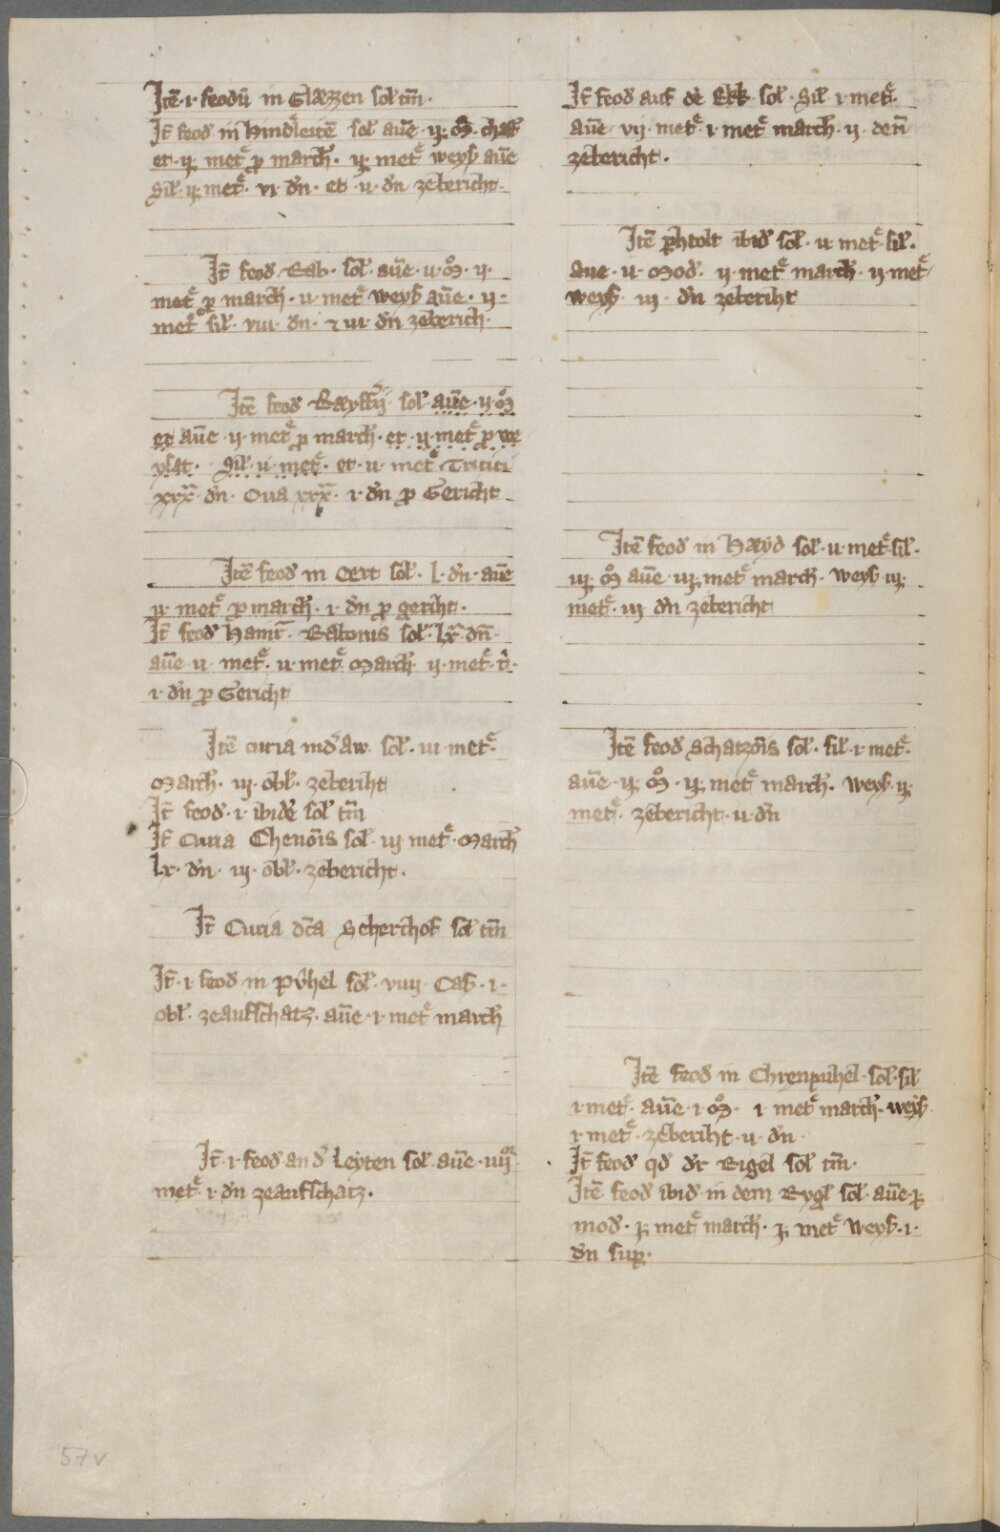 Itē · i · feodū in Glæzzen sol̄ tm̄ ·
It̄ feod̄ in Hindleitē sol̄ auē · ij · m̊ · chast̄
et · ij · met̄ ꝑ march̄ · ij · met̄ weyſ auē
sil̄ · ij · met̄ · vi · dn̄ · et · ii · dn̄ zebericht ·
It̄ feod̄ Rab · sol̄ · auē · ii · m̊ · ij ·
met̄ ꝑ march̄ · ii · met̄ weyſ auē · ij ·
met̄ sil̄ · viii · dn̄ · ⁊ iii · dn̄ zeberich ·
Itē feod̄ sol̄ auē · ij · m̊
et auē · ij · met̄ ꝑ march̄ · et · ij · met̄ ꝑ we
sil̄ · ii · met̄ · et · ii · met̄ Tritici
xxx · dn̄ · Oua xxx · i · dn̄ ꝑ Gericht
Itē feod̄ in Oert sol̄ · l · dn̄ · auē
ii · met̄ ꝑ march̄ · i · dn̄ ꝑ gericht ·
It̄ feod̄ Ratonis sol̄ · lx · dn̄ ·
auē · ii · met̄ · ii · met̄ march̄ ij · met̄ ·
i · dn̄ ꝑ Gericht
Itē curia ind̄ aw · sol̄ · iii · met̄ ·
march̄ · iij · obl̄ · zebericht
It̄ feod̄ · i · ibidē sol̄ tm̄
It̄ Curia Chenōis sol̄ · iij · met̄ · march̄
lx · dn̄ · iij · obl̄ · zebericht ·
It̄ Curia dc̄a Scherchof sol̄ tm̄
It̄ · i · feod̄ in pvͦhel sol̄ · viiij · Cas̄ · i ·
obl̄ · zeaufschatz · auē · i · met̄ march̄
It̄ · i · feod̄ an d̄ Leyten sol̄ · auē · iiij
met̄ · i · dn̄ zeaufschatz ·
It̄ feod̄ auf dē Ekk · sol̄ · sil̄ · i · met̄ ·
auē · vij · met̄ · i · met̄ march̄ · ij · den̄
zēbericht ·
Itē ꝑhtolt ibid̄ sol̄ · ii · met̄ · sil̄ ·
aue · ii · mod̄ · ij · met̄ march̄ · ij · met̄
weyſ · iij · dn̄ zebericht
Itē feod̄ in Hayd sol̄ · ii · met̄ · sil̄ ·
iij · m̊ auē · iij · met̄ march̄ · weyſ · iij ·
met̄ · iij · dn̄ zebericht
Itē feod̄ schatzōis sol̄ · sil̄ · i · met̄ ·
auē · ij · m̊ · ij · met̄ march̄ · weyſ · ij ·
met̄ · zebericht · ii · dn̄
Itē feod̄ in Chrenpuͤhel · sol̄ · sil̄
i · met̄ · auē · i · m̊ · i · met̄ march̄ · weyſ ·
i · met̄ · zebericht · ii · dn̄ ·
It̄ feod̄ qd̄ dr̄ Rigel sol̄ tm̄ ·
Itē feod̄ ibid̄ in dem Rygl sol̄ · auē · j ·
mod̄ · j · met̄ march̄ · j · met̄ weyſ · i ·
dn̄ suꝑ ·
57v